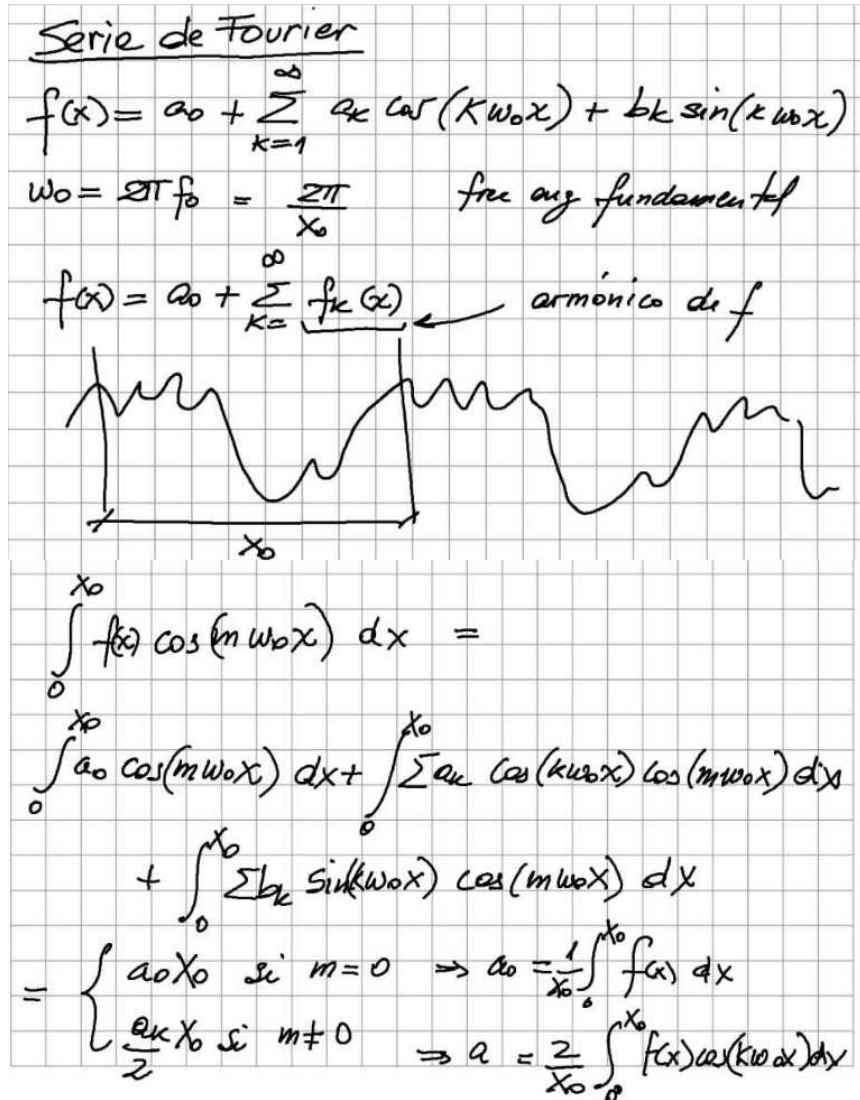 Serie de Fourier
f(x) = a₀ + ∑_{k=1}^{∞} aₖ cos(kω₀x) + bₖ sin(kω₀x)
ω₀ = 2πf₀ = 2π/X₀ frec ang fundamental
f(x) = a₀ + ∑_{k=}^{∞} fₖ(x) ← armónico de f
X₀
∫₀^{X₀} f(x) cos(mω₀x) dx =
∫₀^{X₀} a₀ cos(mω₀x) dx + ∫₀^{X₀} ∑aₖ cos(kω₀x) cos(mω₀x) dx
+ ∫₀^{X₀} ∑bₖ sin(kω₀x) cos(mω₀x) dx
= { a₀X₀ si m = 0 ⇒ a₀ = 1/X₀ ∫₀^{X₀} f(x) dx
aₖ/2 X₀ si m ≠ 0 ⇒ a = 2/X₀ ∫₀^{X₀} f(x) cos(kω₀x) dx